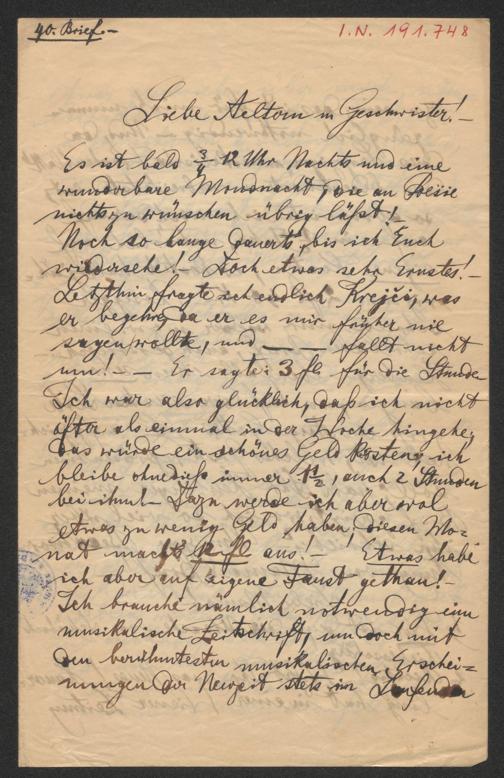 40. Brief.-
I.N. 191.748
Liebe Aeltern u Geschwister!-
Es ist bald 3/4 12 Uhr Nachts und eine
wunderbare Mondnacht, die an Poesie
nichts zu wünschen übrig läßt!
Noch so lange dauerts, bis ich Euch
wiedersehe!- Doch etwas sehr Ernstes!-
Letzthin fragte ich endlich Krejči, was
er begehre, da er es mir früher nie
sagen wollte, und — — — fallt nicht
um!-- Er sagte: 3 fl für die Stunde
Ich war also glücklich, daß ich nicht
öfter als einmal in der Woche hingehe,
das würde ein schönes Geld kosten, ich
bleibe ohnedieß immer 1 1/2, auch 2 Stunden
bei ihm!- Dazu werde ich aber wol
etwas zu wenig Geld haben, diesen Mo-
nat machts 12 fl aus!- Etwas habe
ich aber auf eigene Faust gethan!-
Ich brauche nämlich notwendig eine
musikalische Zeitschrift, um doch mit
den berühmtesten musikalischen Erschei-
nungen der Neuzeit stets im Laufenden